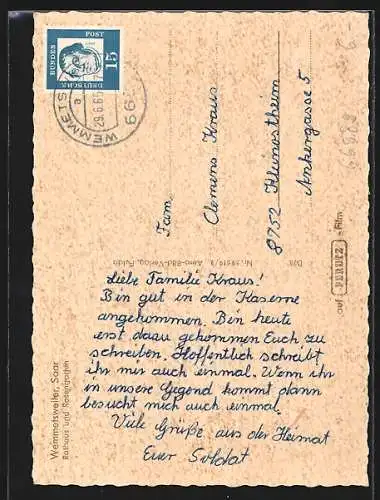 DEUTSCHE
BUNDES
POST
15
WEMMETS
a
29.6.6
663
Fam.
Clemens Kraus
8752 Kleinostheim
Ankergasse 5
Liebe Familie Kraus!
Bin gut in der Kaserne
angekommen. Bin heute
erst dazu gekommen Euch zu
schreiben. Hoffentlich schreibt
ihr mir auch einmal. Wenn ihr
in unsere Gegend kommt dann
besucht mich auch einmal.
Viele Grüße aus der Heimat
Euer Soldat
Wemmetsweiler, Saar
Rathaus und Rosengarten
Aero-Bild-Verlag, Fulda
auf PERUTZ-Film